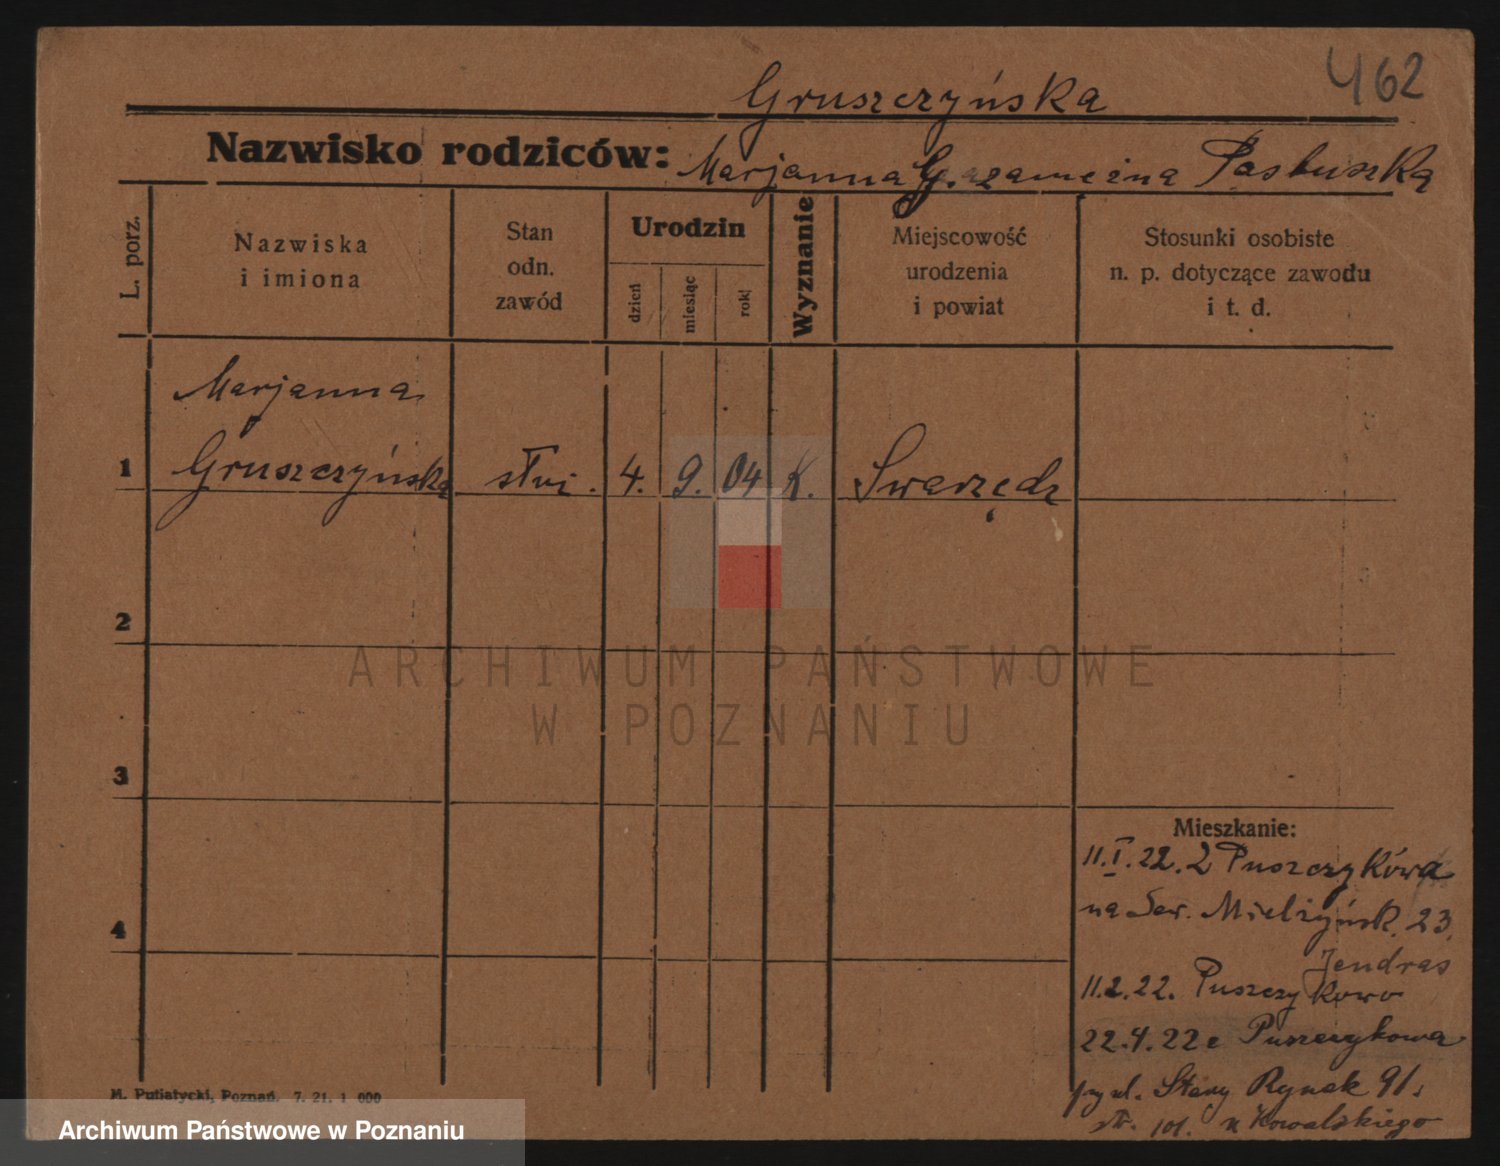 462
Gruszczyńska
Nazwisko rodziców: Marjanna G. zamężna Pastuszka
L. porz.
Nazwiska
i imiona
Stan
odn.
zawód
Urodzin
dzień
miesiąc
rok
Wyznanie
Miejscowość
urodzenia
i powiat
Stosunki osobiste
n. p. dotyczące zawodu
i t. d.
Marjanna
1 Gruszczyńska służ. 4. 9. 04 K. Swarzędz
2
ARCHIWUM PAŃSTWOWE
W POZNANIU
3
Mieszkanie:
11.I.22. z Puszczykówa
na Sew. Mielżyńsk. 23
4
Jendras
11.2.22. Puszczykowo
22.4.22 z Puszczykowa
przy ul. Stary Rynek 91.
str. 101. u Kowalskiego
M. Putiatycki, Poznań. 7. 21. 1 000
Archiwum Państwowe w Poznaniu